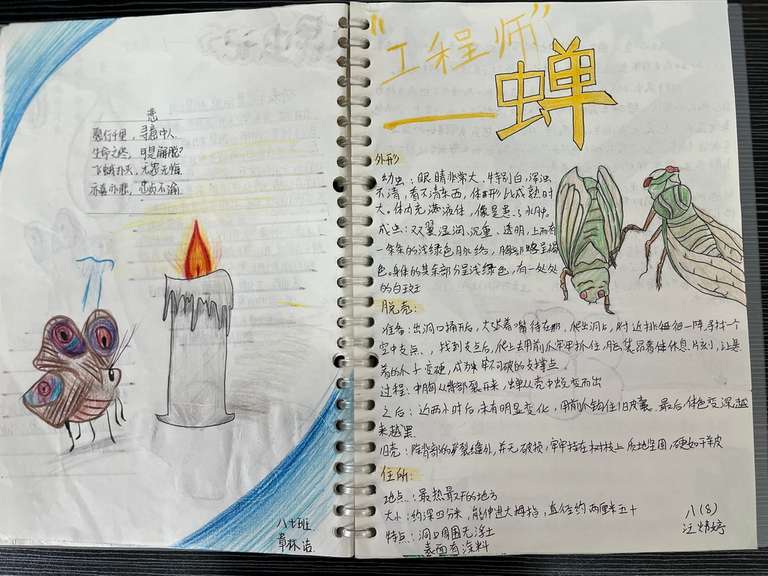 恋
寻高中人
生命之烬，可是解脱？
飞蛾扑火，无怨无悔
八七班
章林洁
"工程师"
——蝉
外形
幼虫：眼睛非常大，特别白，浑浊
不清，看不清东西，体形比成熟时
大。体内充满液体，像是患了水肿。
成虫：双翼湿润、沉重、透明，上面有
一条条的浅绿色脉络，胸部略呈棕
色。身体的其余部分呈浅绿色，有一处处
的白斑
脱壳：
准备：出洞口捅开后，爬出洞口，附近徘徊一阵，寻找一个
空中支点、，找到支点后，爬上去用前爪牢牢抓住，休息片刻，让悬
着的爪子变硬，成为牢不可破的支撑点
过程：中胸从背部裂开来，蝉从壳中蜕变而出
之后：近两小时后，未有明显变化，用前爪钩住旧皮囊，最后，体色变深越
来越黑
旧壳：除背部的裂缝外，并无破损，牢牢挂在树枝上，质地坚固，硬如干羊皮
住所：
地点：最热最干的地方
大小：约深四分米，能伸进大拇指，直径约两厘米五十
特点：洞口周围无浮土
表面有涂料
八(8)